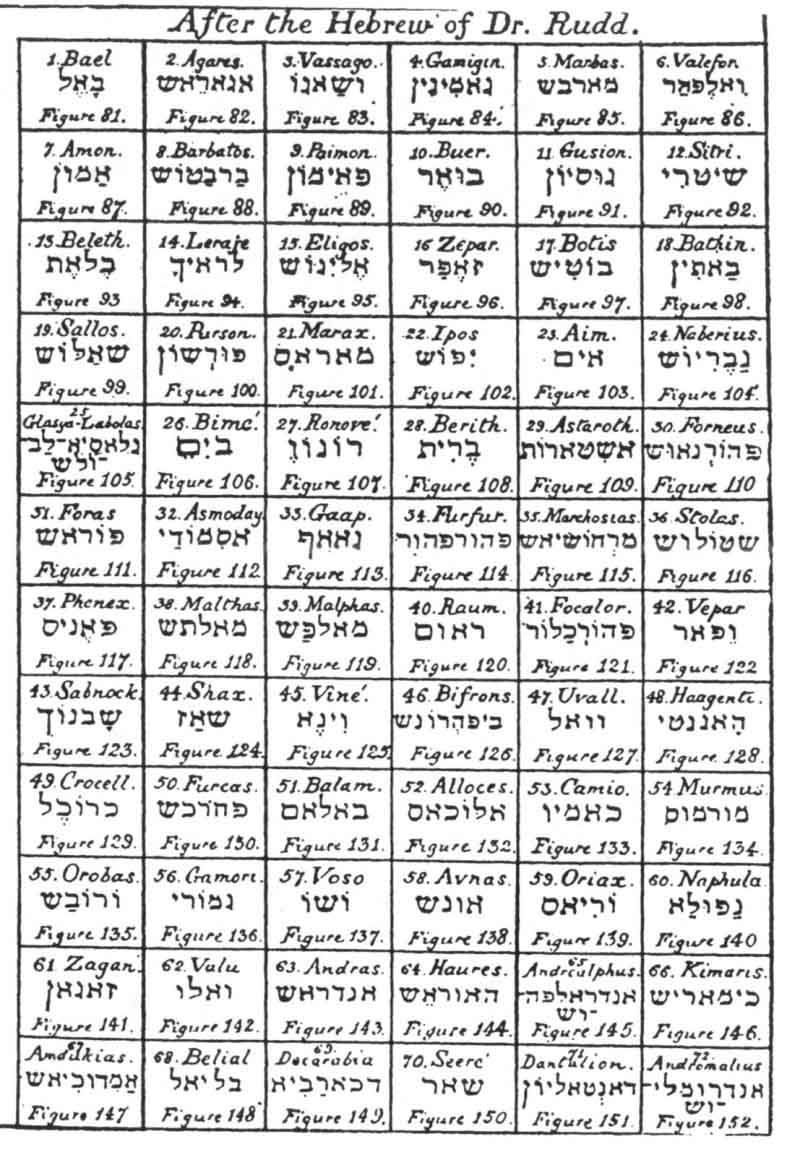 After the Hebrew of Dr. Rudd.
1. Bael
בָאֶל
Figure 81.
2. Agares.
אגאראש
Figure 82.
3. Vassago.
ושאגו
Figure 83.
4. Gamigin.
גאמיגין
Figure 84.
5. Marbas.
מארבש
Figure 85.
6. Valefon
ואלפהר
Figure 86.
7. Amon.
אמון
Figure 87.
8. Barbatos.
ברבטוש
Figure 88.
9. Paimon.
פאימון
Figure 89.
10. Buer.
בואר
Figure 90.
11. Gusion.
גוסיון
Figure 91.
12. Sitri.
שיטרי
Figure 92.
13. Beleth.
בלאת
Figure 93
14. Leraje
לראיך
Figure 94.
15. Eligos.
אליגוש
Figure 95.
16 Zepar.
זאפר
Figure 96.
17. Botis
בוטיש
Figure 97.
18. Bathin.
באתין
Figure 98.
19. Sallos.
שאלוש
Figure 99.
20. Purson.
פורשון
Figure 100.
21. Marax.
מאראס
Figure 101.
22. Ipos
יפוש
Figure 102
23. Aim.
אים
Figure 103.
24. Naberius.
נבריוש
Figure 104.
25
Glasya-Labolas.
גלאסיא-לב-
-ולש
Figure 105.
26. Bimé.
בים
Figure 106.
27. Ronové.
רונון
Figure 107.
28. Berith.
ברית
Figure 108.
29. Astaroth.
אשטארות
Figure 109.
30. Forneus.
פהורנאוש
Figure 110
31. Foras
פוראש
Figure 111.
32. Asmoday
אסמודי
Figure 112
33. Gaap.
גאאף
Figure 113.
34. Furfur.
פהורפהור
Figure 114
35. Marchosias.
מרחושיאש
Figure 115.
36. Stolas.
שטולוש
Figure 116.
37. Phenex.
פאניס
Figure 117.
38. Malthas.
מאלתש
Figure 118.
39. Malphas.
מאלפש
Figure 119.
40. Raum.
ראום
Figure 120.
41. Focalor.
פהורכלור
Figure 121.
42. Vepar
ופאר
Figure 122
43. Sabnock.
שבנוך
Figure 123.
44. Shax.
שאז
Figure 124.
45. Viné.
וינא
Figure 125.
46. Bifrons.
ביפהרונש
Figure 126.
47. Uvall.
וואל
Figure 127.
48. Haagenti.
האגנטי
Figure 128.
49. Crocell.
כרוכל
Figure 129.
50. Furcas.
פהורכש
Figure 130.
51. Balam.
באלאם
Figure 131.
52. Alloces.
אלוכאס
Figure 132.
53. Camio.
כאמיו
Figure 133.
54 Murmus.
מורמוס
Figure 134.
55. Orobas.
ורובש
Figure 135.
56. Gamori.
גמורי
Figure 136.
57. Voso
ושו
Figure 137.
58. Avnas.
אונש
Figure 138.
59. Oriax.
וריאס
Figure 139.
60. Naphula
נפולא
Figure 140
61. Zagan.
זאגאן
Figure 141.
62. Valu
ואלו
Figure 142.
63. Andras.
אנדראש
Figure 143.
64. Haures.
האוראש
Figure 144.
65.
Andrealphus.
אנדראלפה-
-וש
Figure 145.
66. Kimaris.
כימאריש
Figure 146.
67
Amdukias.
אמדוכיאש
Figure 147
68. Belial
בליאל
Figure 148
69.
Decarabia
דכארביא
Figure 149.
70. Seeré
שאר
Figure 150.
71
Dantalion.
דאנטאליון
Figure 151.
72
Andromalius
אנדרומלי-
-וש
Figure 152.